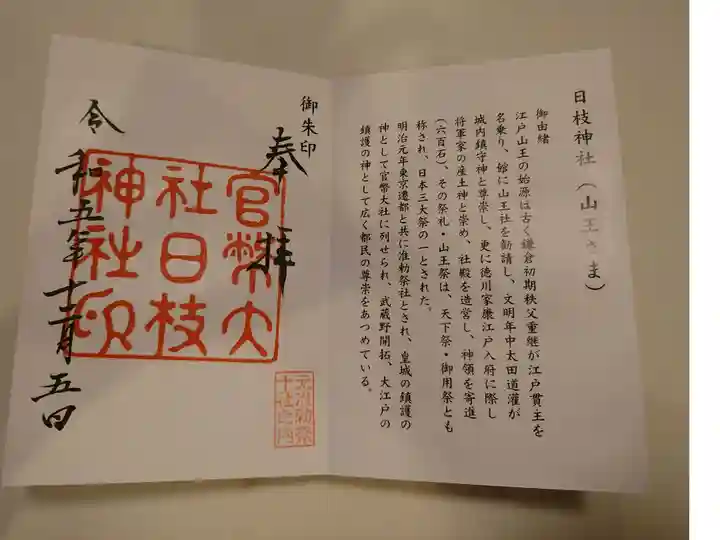 日枝神社(山王さま)
御由緒
江戸山王の始源は古く鎌倉初期秩父重継が江戸貫主を
名乗り、館に山王社を勧請し、文明年中太田道灌が
城内鎮守神と尊崇し、更に徳川家康江戸入府に際し
将軍家の産土神と崇め、社殿を造営し、神領を寄進
(六百石)、その祭礼・山王祭は、天下祭・御用祭とも
称され、日本三大祭の一とされた。
明治元年東京遷都と共に准勅祭社とされ、皇城の鎮護の
神として官幣大社に列せられ、武蔵野開拓、大江戸の
鎮護の神として広く都民の尊崇をあつめている。
御朱印
奉拝
官幣大
社日枝
神社印
元准勅祭
十社之内
令和五年十二月五日